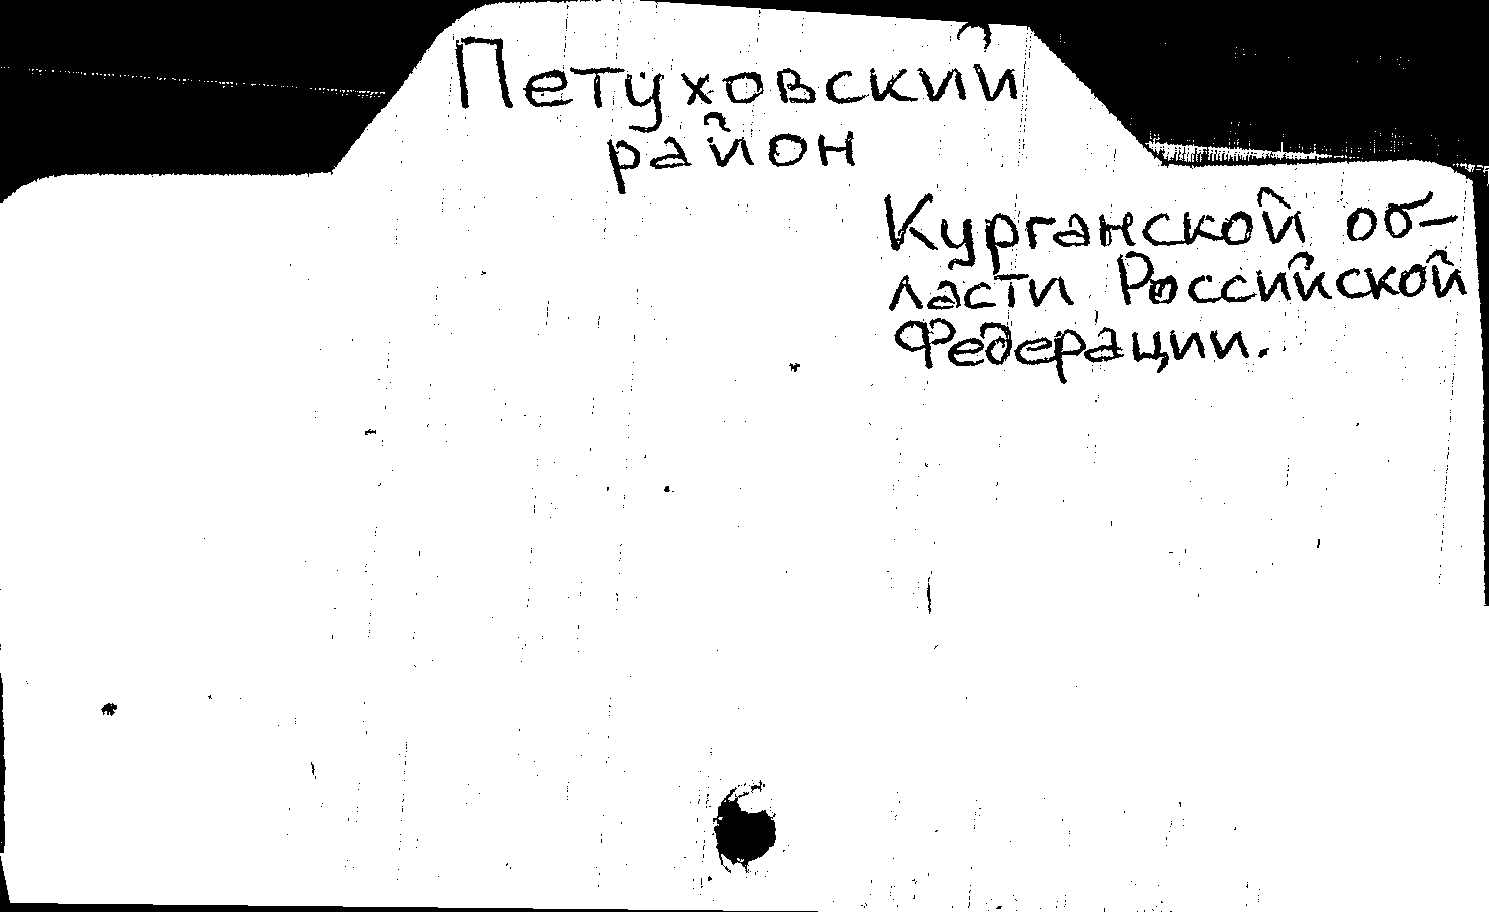 Петуховский
район
Курганской об-
ласти Российской
Федерации.